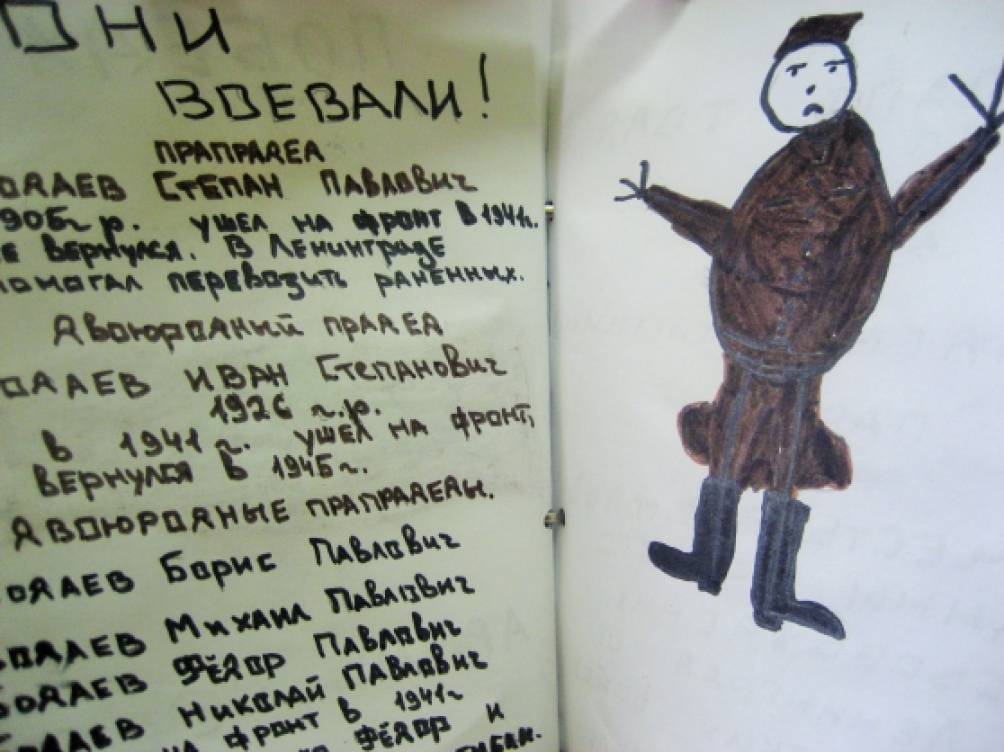 ОНИ
ВОЕВАЛИ!
ПРАПРАДЕД
ОДАЕВ СТЕПАН ПАВЛОВИЧ
905г р. УШЕЛ НА ФРОНТ В 1941г.
Е ВЕРНУЛСЯ. В ЛЕНИНГРАДЕ
ПОМОГАЛ ПЕРЕВОЗИТЬ РАНЕННЫХ.
ДВОЮРОДНЫЙ ПРАДЕД
ОДАЕВ ИВАН СТЕПАНОВИЧ
1926 г.р.
В 1941 г. УШЕЛ НА ФРОНТ,
ВЕРНУЛСЯ В 1945г.
ДВОЮРОДНЫЕ ПРАПРАДЕДЫ.
ОДАЕВ БОРИС ПАВЛОВИЧ
ОДАЕВ МИХАИЛ ПАВЛОВИЧ
БОДАЕВ ФЁДОР ПАВЛОВИЧ
НИКОЛАЙ ПАВЛОВИЧ
НА ФРОНТ В 1941г
ФЁДОР И